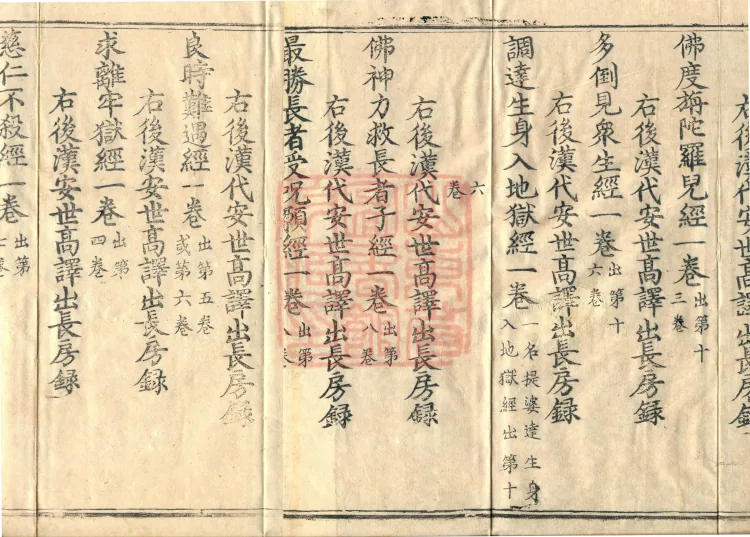 右後漢代安世高譯出長房録
佛度旃陀羅兒經一卷出第十
三卷
右後漢代安世高譯出長房録
多倒見衆生經一卷出第十
六卷
右後漢代安世高譯出長房録
調達生身入地獄經一卷一名提婆達生身
入地獄經出第十
六
卷
右後漢代安世高譯出長房録
佛神力救長者子經一卷出第
八卷
右後漢代安世高譯出長房録
最勝長者受呪願經一卷出第
八卷
右後漢代安世高譯出長房録
良時難遇經一卷出第五卷
或第六卷
右後漢安世高譯出長房録
求離牢獄經一卷出第
四卷
右後漢安世高譯出長房録
慈仁不殺經一卷出第
七卷